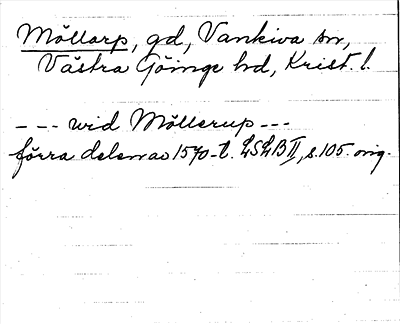 Möllarp, gd, Vankiva sn,
Västra Göinge hd, Krist. l.
--- wid Möllerup ---
förra delen av 1570-t. LSLB II, s. 105. orig.